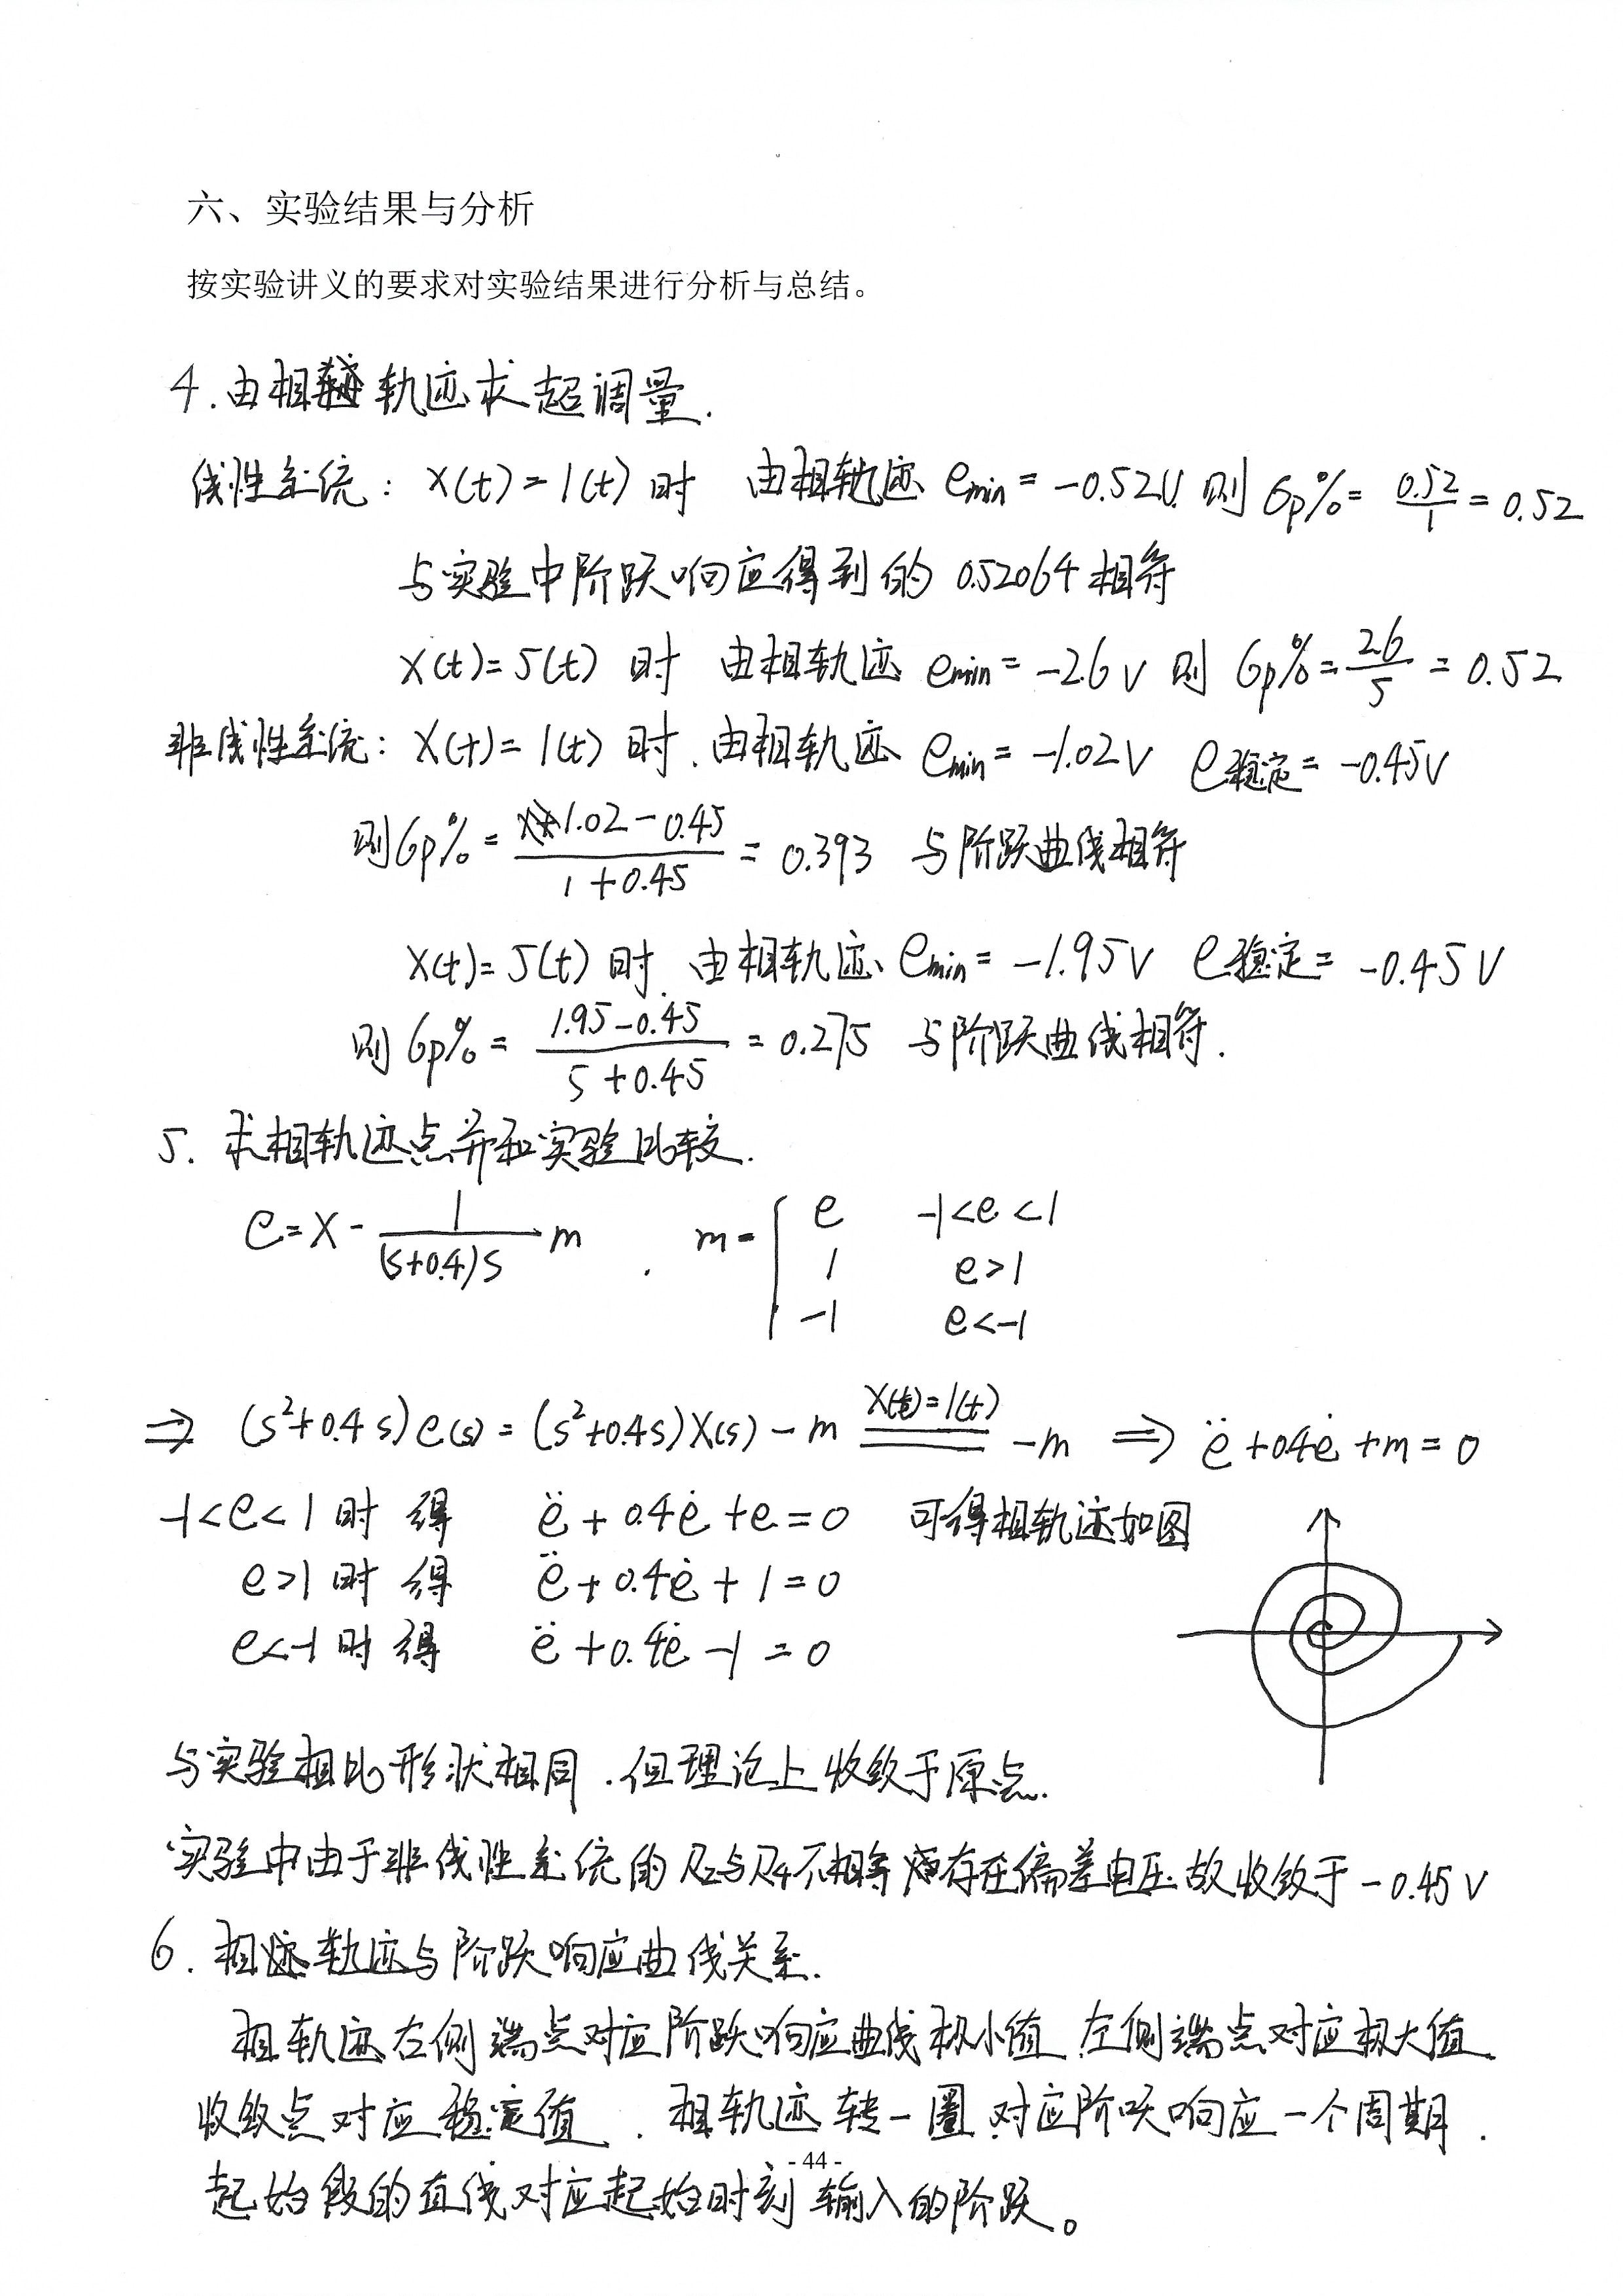 六、实验结果与分析
按实验讲义的要求对实验结果进行分析与总结。
4.由相轨迹求超调量.
线性系统: X(t)=1(t) 时 由相轨迹 emin=-0.52V. 则 σp%= 0.52/1 = 0.52
与实验中阶跃响应得到的 0.52064 相符
X(t)=5(t) 时 由相轨迹 emin=-2.6V 则 σp%= 2.6/5 = 0.52
非线性系统: X(t)=1(t) 时. 由相轨迹 emin=-1.02V e稳定=-0.45V
则 σp% = (1.02-0.45)/(1+0.45) = 0.393 与阶跃曲线相符
X(t)=5(t) 时. 由相轨迹. emin=-1.95V e稳定=-0.45V
则 σp% = (1.95-0.45)/(5+0.45) = 0.275 与阶跃曲线相符.
5. 求相轨迹点并和实验比较.
e=X- 1/((s+0.4)s) m . m= { e -1<e<1
1 e>1
-1 e<-1
⇒ (s²+0.4s)e(s)=(s²+0.4s)X(s)-m X(t)=1(t) == -m ⇒ ë+0.4ė+m=0
-1<e<1 时 得 ë+0.4ė+e=0 可得相轨迹如图
e>1 时 得 ë+0.4ė+1=0
e<-1 时 得 ë+0.4ė-1=0
与实验相比形状相同.但理论上收敛于原点.
实验中由于非线性系统的 R2与R4不相等 存在偏差电压.故收敛于-0.45V
6. 相轨迹与阶跃响应曲线关系.
相轨迹右侧端点对应阶跃响应曲线极小值.左侧端点对应极大值.
收敛点对应稳定值. 相轨迹转一圈.对应阶跃响应一个周期.
- 44 -
起始段的直线对应起始时刻输入的阶跃。